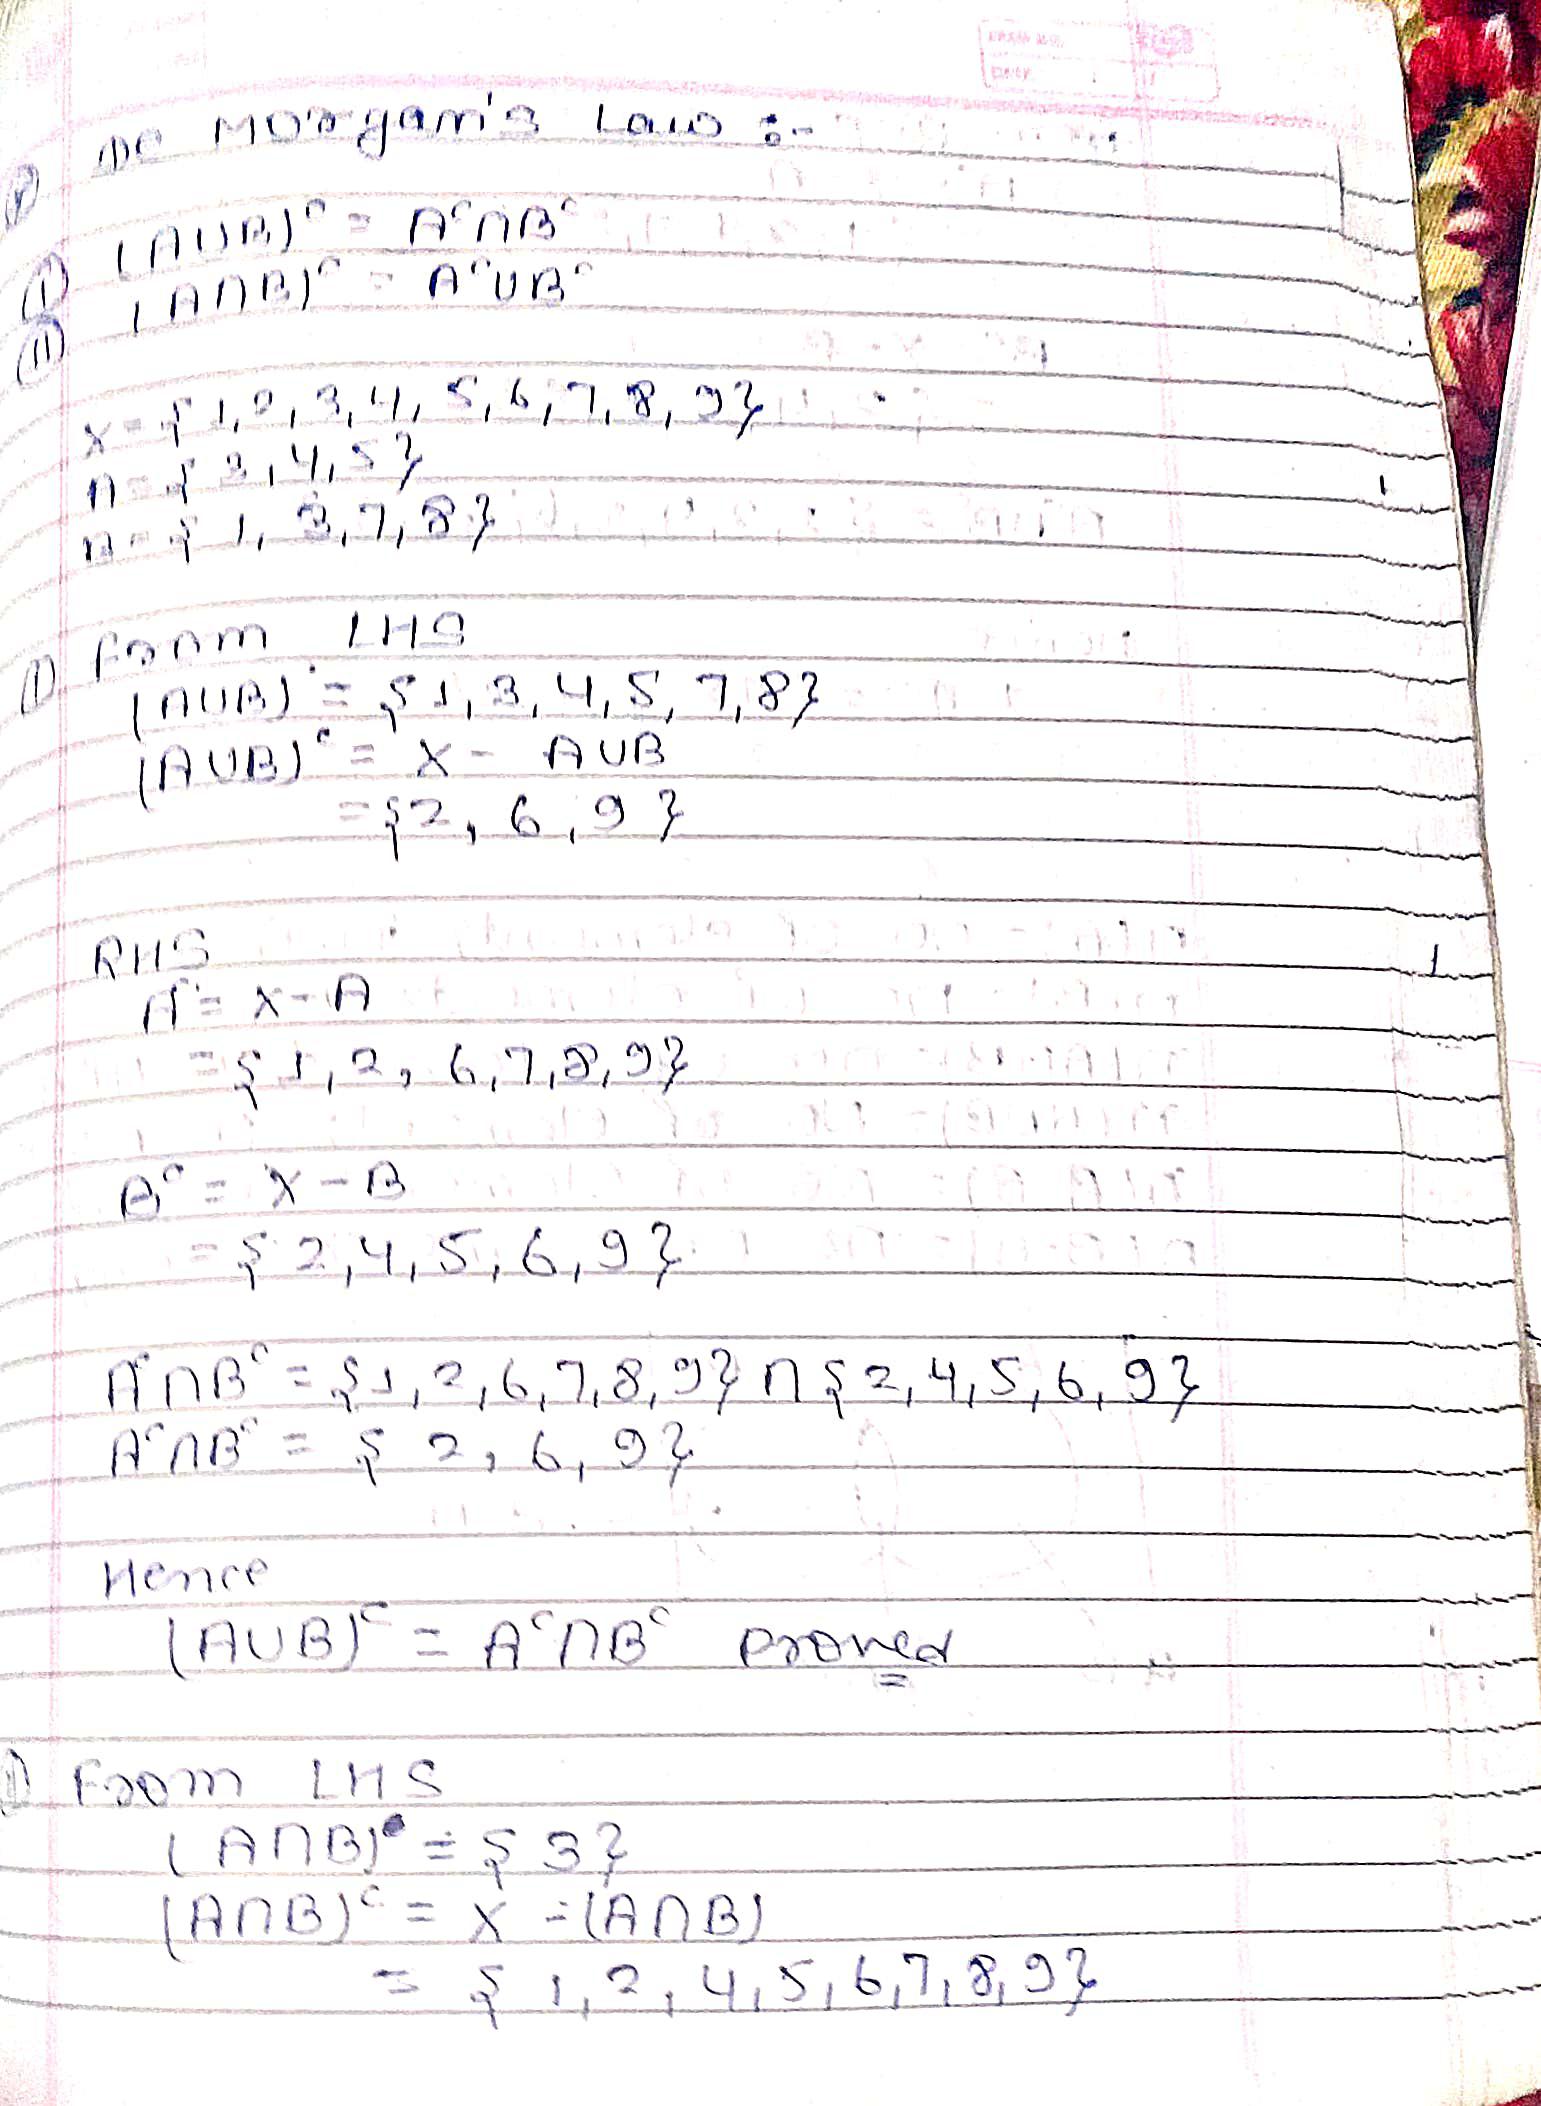 De Morgan's Law :-
(I) (A∪B)ᶜ = Aᶜ∩Bᶜ
(II) (A∩B)ᶜ = Aᶜ∪Bᶜ
X = {1, 2, 3, 4, 5, 6, 7, 8, 9}
A = {3, 4, 5}
B = {1, 3, 7, 8}
(I) From LHS
(A∪B) = {1, 3, 4, 5, 7, 8}
(A∪B)ᶜ = X - A∪B
= {2, 6, 9}
RHS
Aᶜ = X - A
= {1, 2, 6, 7, 8, 9}
Bᶜ = X - B
= {2, 4, 5, 6, 9}
Aᶜ∩Bᶜ = {1, 2, 6, 7, 8, 9} ∩ {2, 4, 5, 6, 9}
Aᶜ∩Bᶜ = {2, 6, 9}
Hence
(A∪B)ᶜ = Aᶜ∩Bᶜ proved
From LHS
(A∩B) = {3}
(A∩B)ᶜ = X - (A∩B)
= {1, 2, 4, 5, 6, 7, 8, 9}